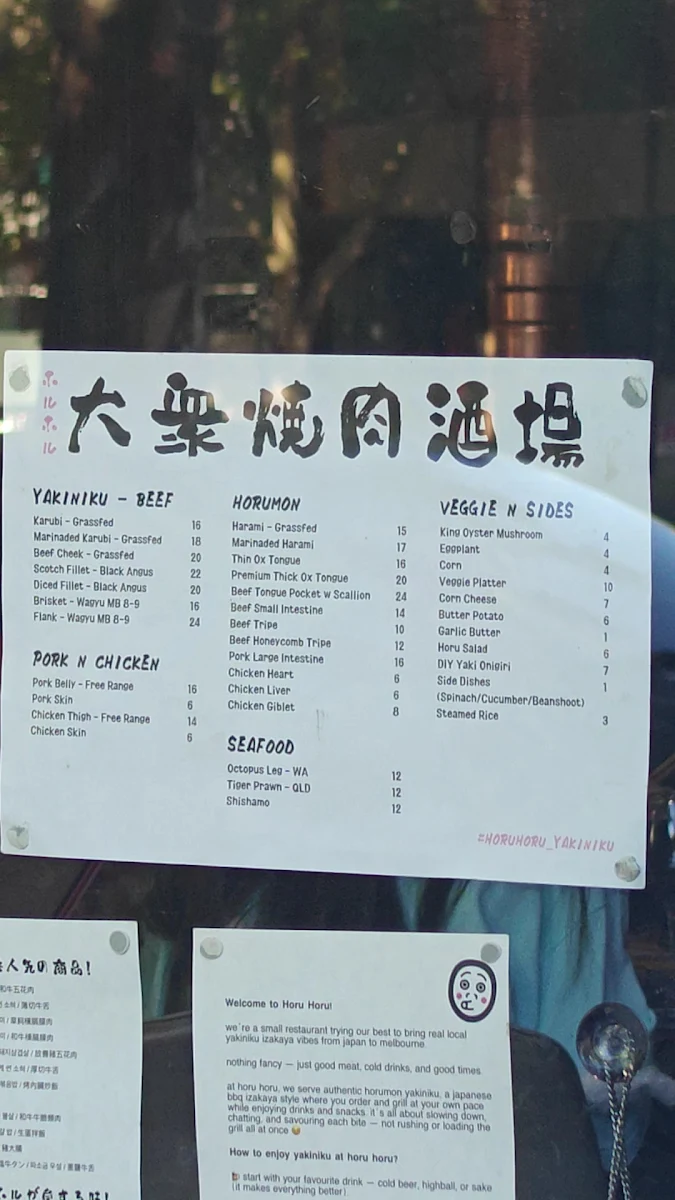 ホルホル
大衆焼肉酒場
YAKINIKU - BEEF
Karubi - Grassfed 16
Marinaded Karubi - Grassfed 18
Beef Cheek - Grassfed 20
Scotch Fillet - Black Angus 22
Diced Fillet - Black Angus 20
Brisket - Wagyu MB 8-9 16
Flank - Wagyu MB 8-9 24
PORK N CHICKEN
Pork Belly - Free Range 16
Pork Skin 6
Chicken Thigh - Free Range 14
Chicken Skin 6
HORUMON
Harami - Grassfed 15
Marinaded Harami 17
Thin Ox Tongue 16
Premium Thick Ox Tongue 20
Beef Tongue Pocket w Scallion 24
Beef Small Intestine 14
Beef Tripe 10
Beef Honeycomb Tripe 12
Pork Large Intestine 16
Chicken Heart 6
Chicken Liver 6
Chicken Giblet 8
SEAFOOD
Octopus Leg - WA 12
Tiger Prawn - QLD 12
Shishamo 12
VEGGIE N SIDES
King Oyster Mushroom 4
Eggplant 4
Corn 4
Veggie Platter 10
Corn Cheese 7
Butter Potato 6
Garlic Butter 1
Horu Salad 6
DIY Yaki Onigiri 7
Side Dishes 1
(Spinach/Cucumber/Beanshoot)
Steamed Rice 3
#HORUHORU_YAKINIKU
人気の商品!
和牛五花肉
/ 薄切牛舌
/ 草飼橫膈膜肉
/ 和牛橫膈膜肉
/ 放養豬五花肉
/ 厚切牛舌
/ 烤內臟炒飯
/ 生蛋拌飯
Welcome to Horu Horu!
we're a small restaurant trying our best to bring real local
yakiniku izakaya vibes from japan to melbourne.
nothing fancy — just good meat, cold drinks, and good times.
at horu horu, we serve authentic horumon yakiniku, a japanese
bbq izakaya style where you order and grill at your own pace
while enjoying drinks and snacks. it's all about slowing down,
chatting, and savouring each bite — not rushing or loading the
grill all at once 😄
How to enjoy yakiniku at horu horu?
🍺 start with your favourite drink — cold beer, highball, or sake
(it makes everything better)